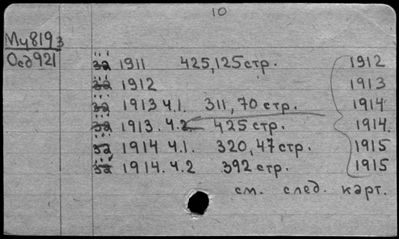 10
Му8193
Осд921
за 1911 425,125стр. 1912
за 1912 1913
за 1913 ч.1. 311,70 стр. 1914
за 1913. ч.2 425 стр. 1914.
за 1914 ч.1. 320,47стр. 1915
за 1914. ч.2 392 стр. 1915
см. след. карт.